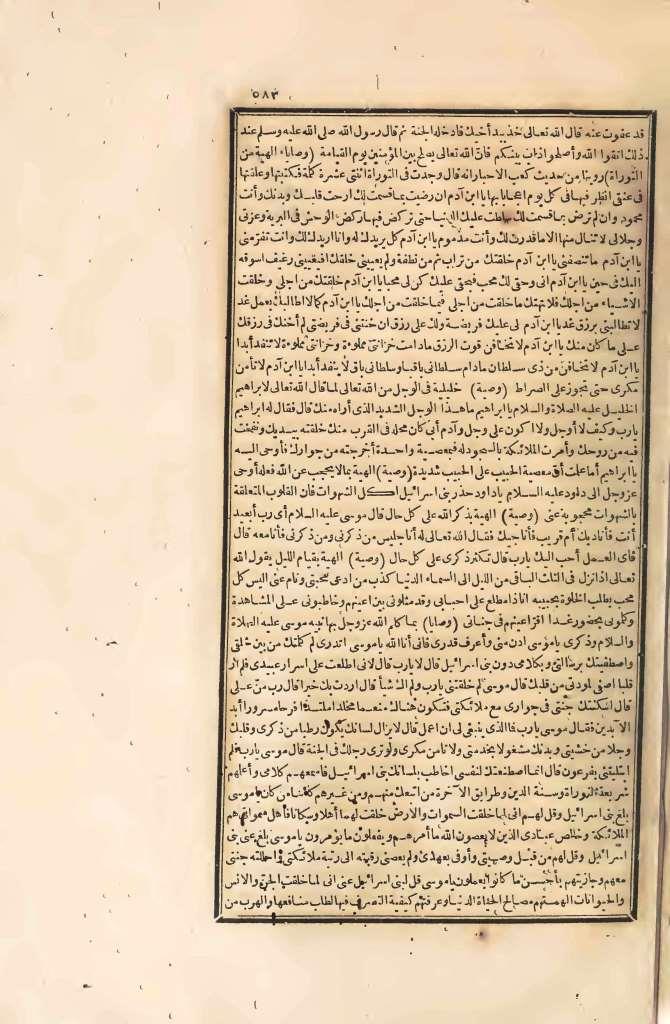 ٥٨٣
قد عفوت عنه قال الله تعالى خذ بيد أخيك فادخله الجنة ثم قال رسول الله صلى الله عليه وسلم عند
ذلك اتقوا الله وأصلحوا ذات بينكم فان الله تعالى يصلح بين المؤمنين يوم القيامة (وصايا) الهية من
التوراة) روينا من حديث كعب الاحبار انه قال وجدت فى التوراة اثنتى عشرة كلمة فكتبتها وعلقتها
فى عنقى انظر فيها فى كل يوم اعجابا بها يا ابن آدم ان رضيت بما قسمت لك ارحت قلبك وبدنك وأنت
محمود وان لم ترض بما قسمت لك سلطت عليك الدنيا حتى تركض فيها ركض الوحش فى البرية وعزتى
وجلالى لا تنال منها الا ما قدرت لك وأنت مذموم يا ابن آدم كل يريدك له وانا اريدك لك وانت تفر منى
يا ابن آدم ما تنصفنى يا ابن آدم خلقتك من تراب ثم من نطفة ولم يعيينى خلقك افيعيينى رغيف اسوقه
اليك فى حين يا ابن آدم انى وحق لك محب فبحقى عليك كن لى محبا يا ابن آدم خلقتك من اجلى وخلقت
الاشياء من اجلك فلا تهتك ما خلقت من اجلى فيما خلقت من اجلك يا ابن آدم كما لا اطالبك بعمل غد
لا تطالبنى برزق غد يا ابن آدم لى عليك فريضة ولك على رزق ان خنتنى فى فريضتى لم أخنك فى رزقك
على ما كان منك يا ابن آدم لا تخافن فوت الرزق ما دامت خزائنى مملوءة وخزائنى مملوءة لا تنفد أبدا
يا ابن آدم لا تخافن من ذى سلطان ما دام سلطانى باقيا وسلطانى باق لا ينفد أبدا يا ابن آدم لا تأمن
مكرى حتى تجوز على الصراط (وصية) خليلية فى الوجل من الله تعالى لما قال الله تعالى لابراهيم
الخليل عليه الصلاة والسلام يا ابراهيم ما هذا الوجل الشديد الذى أراه منك قال فقال له ابراهيم
يارب وكيف لا أوجل ولا اكون على وجل وآدم أبى كان محله فى القرب منك خلقته بيدك ونفخت
فيه من روحك وأمرت الملائكة بالسجود له فبمعصية واحدة أخرجته من جوارك فأوحى اليه
يا ابراهيم أما علمت أن معصية الحبيب على الحبيب شديدة (وصية) الهية بما لا يحجب عن الله فعله أوحى
عز وجل الى داود عليه السلام يا داود حذر بنى اسرائيل اكل الشهوات فان القلوب المتعلقة
بالشهوات محجوبة عنى (وصية) الهية بذكر الله على كل حال قال موسى عليه السلام أى رب أبعيد
أنت فأناديك أم قريب فأناجيك فقال الله تعالى له أنا جليس من ذكرنى ومن ذكرنى فأنا معه قال
فأى العمل أحب اليك يا رب قال تكثر ذكرى على كل حال (وصية) الهية بقيام الليل يقول الله
تعالى اذا نزل فى الثلث الباقى من الليل الى السماء الدنيا كذب من ادعى محبتى ونام عنى اليس كل
محب يطلب الخلوة بحبيبه انا ذا مطلع على احبابى وقد مثلونى بين اعينهم وخاطبونى على المشاهدة
وكلمونى بحضور غدا اقر اعينهم فى جناتى (وصايا) بما كلم الله عز وجل بها نبيه موسى عليه الصلاة
والسلام وذكرى يا موسى ادن منى وأعرف قدرى فانى أنا الله يا موسى اتدرى لم كلمتك من بين خلقى
واصطفيتك برسالتى وبكلامى دون بنى اسرائيل قال لا يارب قال لانى اطلعت على اسرار عبيدى فلم ار
قلبا اصفى لمودتى من قلبك قال موسى لم خلقتنى يارب ولم اك شيأ قال اردت بك خيرا قال رب من على
قال اسكنتك جنتى فى جوارى مع ملائكتى فتكون هناك منعما مخلدا ملتذا فرحا مسرورا أبد
الآبدين فقال موسى يا رب فما الذى ينبغى لى ان اعمل قال لا يزال لسانك يكون رطبا من ذكرى وقلبك
وجلا من خشيتى وبدنك مشغولا بخدمتى ولا تامن مكرى ولو ترى رجلك فى الجنة قال موسى يارب فلم
ابتليتنى بفرعون قال انما اصطنعتك لنفسى اخاطب بلسانك بنى اسرائيل فاسمعهم كلامى وأعلمهم
شريعة التوراة وسنة الدين وطرائق الآخرة من اتبعك منهم ومن غيرهم كائنا من كان يا موسى
بلغ بنى اسرائيل وقل لهم انى لما خلقت السموات والارض خلقت لهما أهلا وسكانا فأهل سمواتى هم
الملائكة وخالص عبادى الذين لا يعصون الله ما أمرهم ويفعلون ما يؤمرون يا موسى بلغ عنى بنى
اسرائيل وقل لهم من قبل وصيتى وأوفى بعهدى ولم يعصنى رقيته الى رتبة ملائكتى وأحللته جنتى
معهم وجازيتهم بأحسن ما كانوا يعملون يا موسى قل لبنى اسرائيل عنى انى لما خلقت الجن والانس
والحيوانات الهمتهم مصالح الحياة الدنيا وعرفتهم كيفية التصرف فيها لطلب منافعها والهرب من